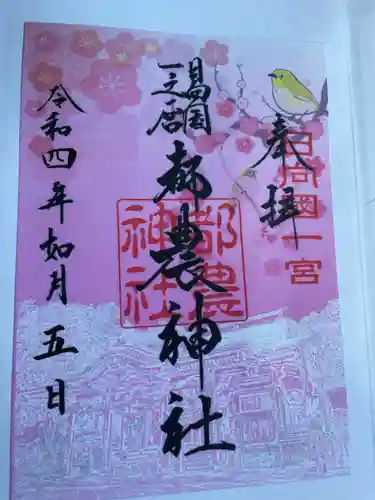 奉拝
日向國一宮
日向國
一之宮
都農神社
都農
神社
令和四年如月五日